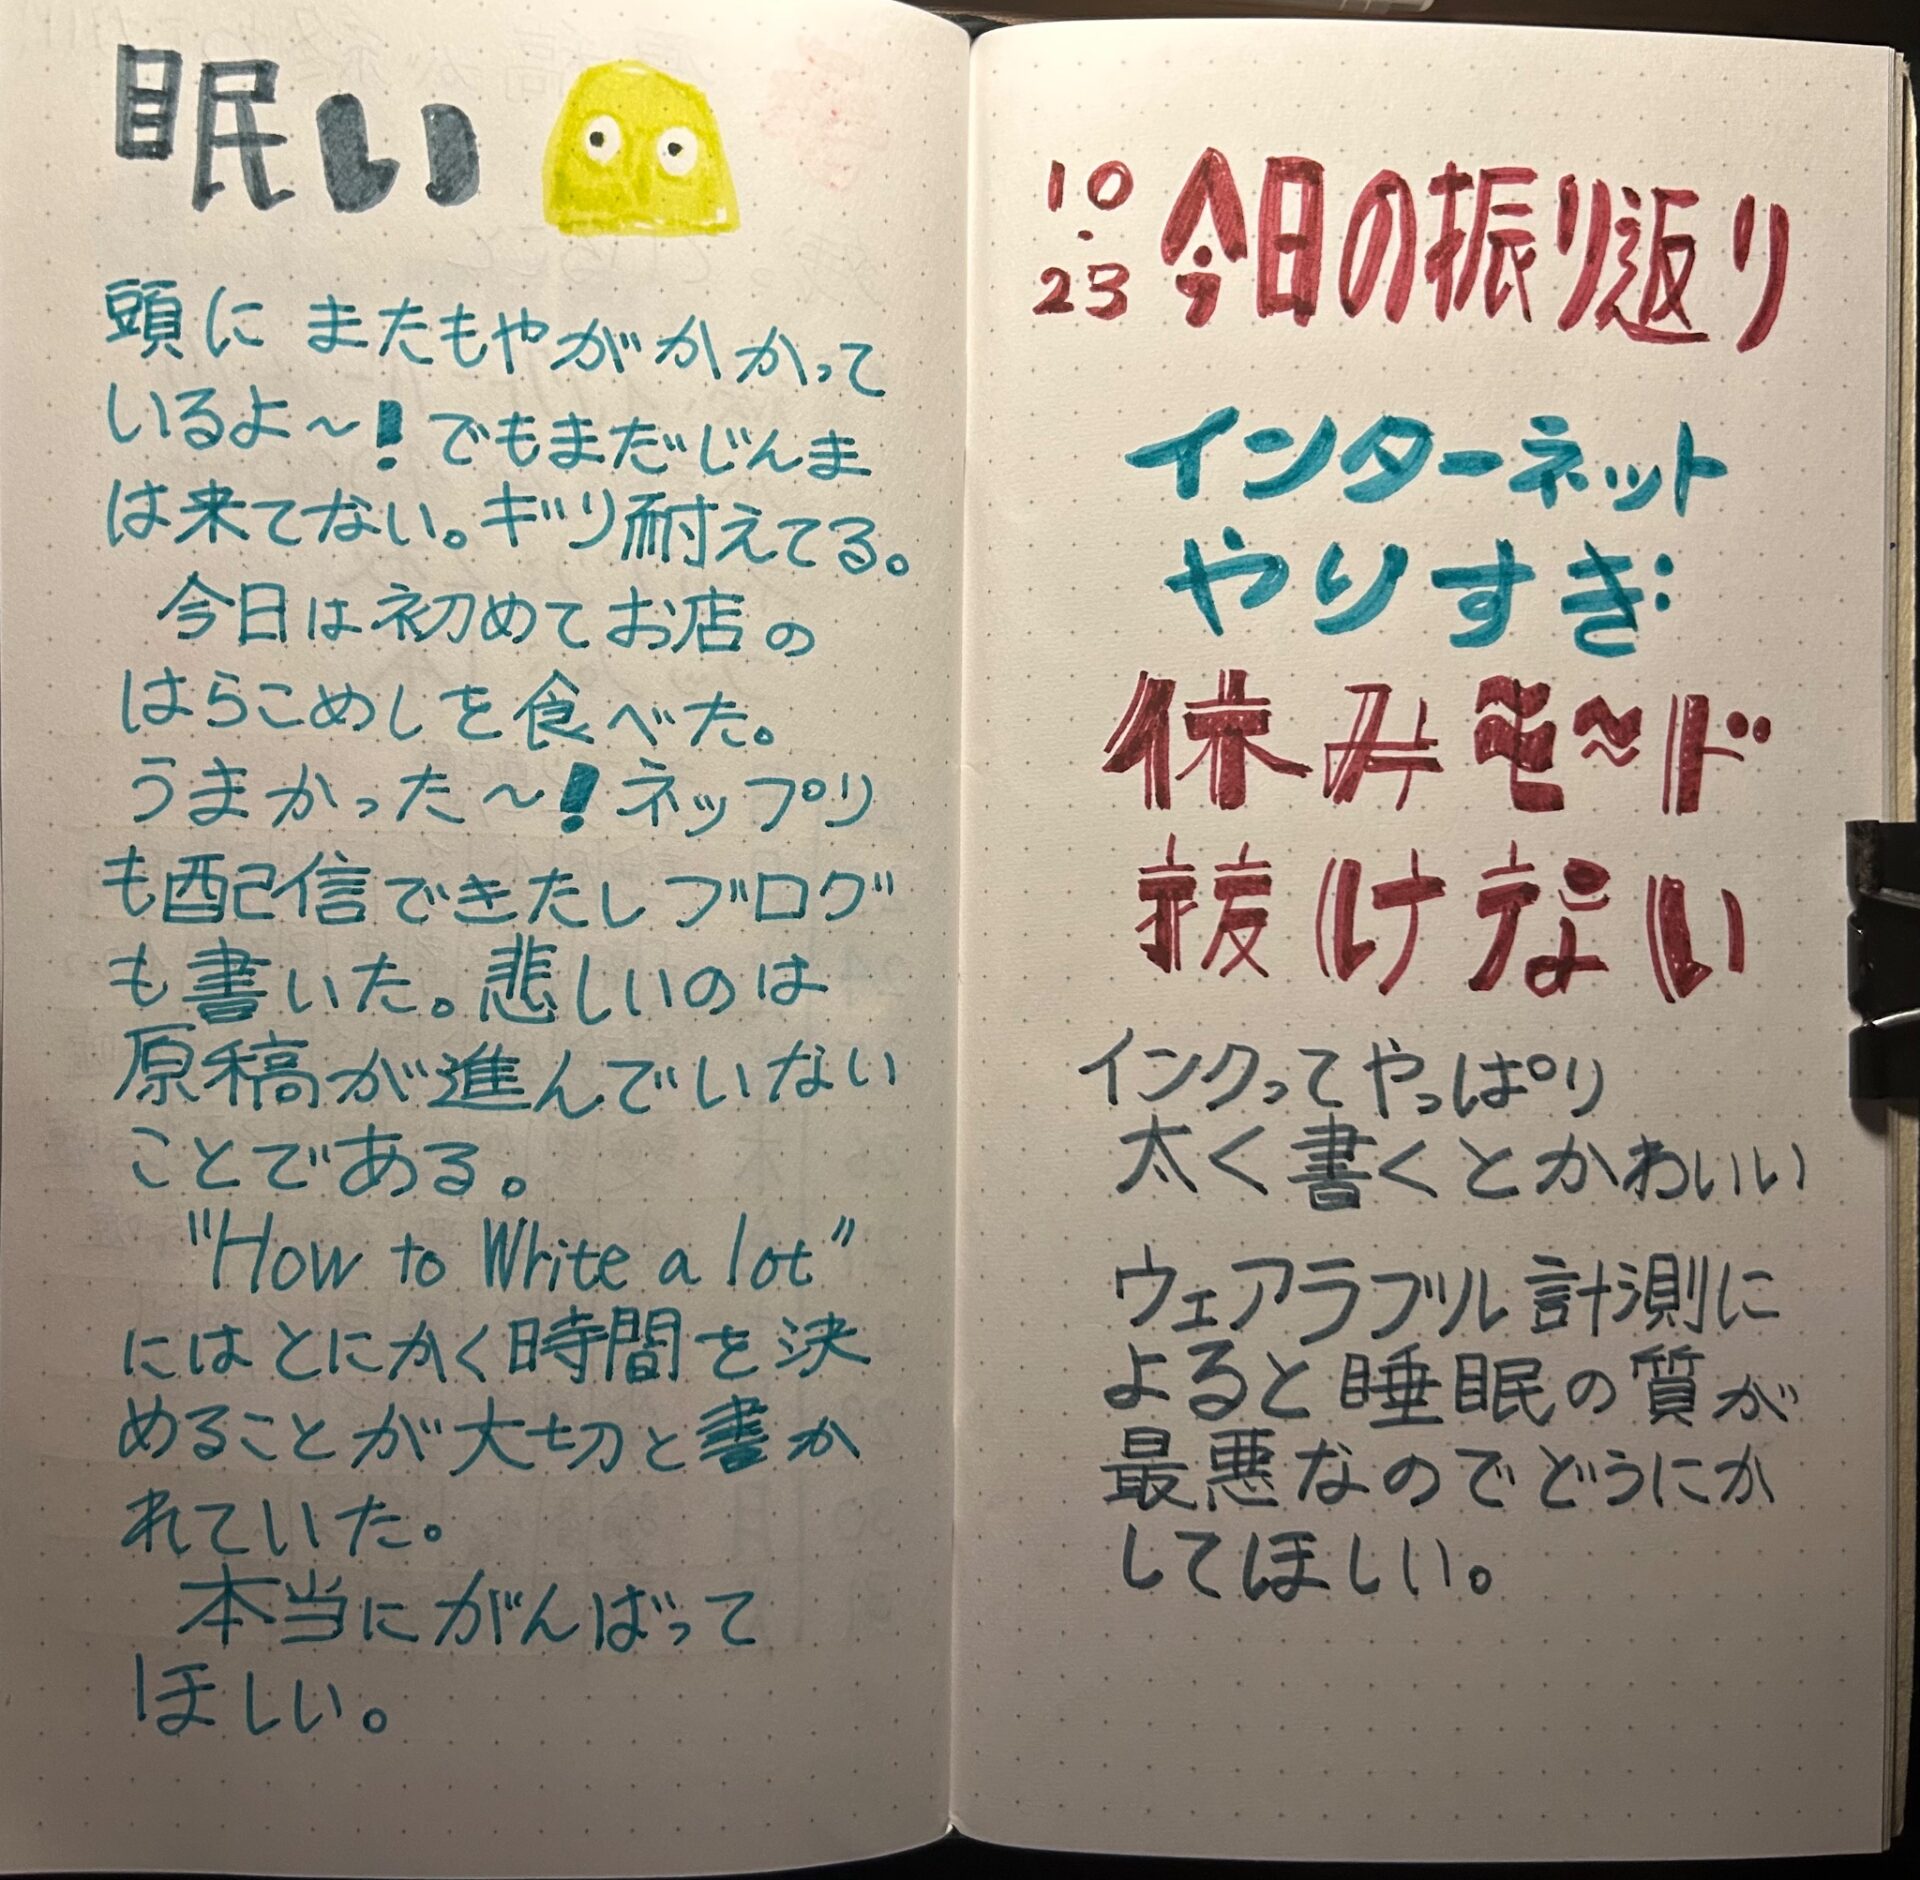 眠い
頭に またもやがかかって
いるよ〜！でもまだじんま
は来てない。ギリ耐えてる。
今日は初めてお店の
はらこめしを食べた。
うまかった〜！ネップリ
も配信できたしブログ
も書いた。悲しいのは
原稿が進んでいない
ことである。
"How to Write a lot"
にはとにかく時間を決
めることが大切と書か
れていた。
本当にがんばって
ほしい。
10.23 今日の振り返り
インターネット
やりすぎ
休みモード
抜けない
インクってやっぱり
太く書くとかわいい
ウェアラブル計測に
よると睡眠の質が
最悪なのでどうにか
してほしい。